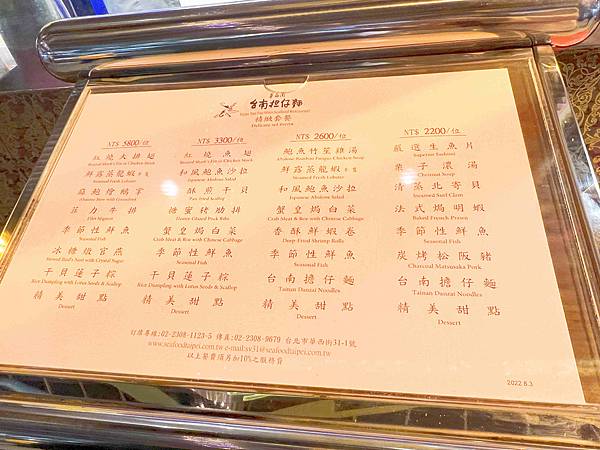 華西街
台南担仔麵
精緻套餐
Delicate set menu
NT$ 5800/位
紅燒大排翅
Braised Shark's Fin in Chicken Stock
鮮露蒸龍蝦
Steamed Fresh Lobster
蠔鮑燴鵝掌
菲力牛排
Filet Mignon
季節性鮮魚
Seasonal Fish
冰糖燉官燕
Stewed Bird's Nest with Crystal Sugar
干貝蓮子粽
Rice Dumpling with Lotus Seeds & Scallop
精美甜點
Dessert
NT$ 3300/位
紅燒魚翅
Braised Shark's Fin in Chicken Stock
和風鮑魚沙拉
Japanese Abalone Salad
酥煎干貝
Pan Fried Scallop
糖蜜烤肋排
Honey Glazed Pork Ribs
蟹皇焗白菜
Crab Meat & Roe with Chinese Cabbage
季節性鮮魚
Seasonal Fish
干貝蓮子粽
Rice Dumpling with Lotus Seeds & Scallop
精美甜點
Dessert
NT$ 2600/位
鮑魚竹笙雞湯
Abalone Bamboo Fungus Chicken Soup
鮮露蒸龍蝦
Steamed Fresh Lobster
和風鮑魚沙拉
Japanese Abalone Salad
蟹皇焗白菜
Crab Meat & Roe with Chinese Cabbage
香酥鮮蝦卷
Deep-Fried Shrimp Rolls
季節性鮮魚
Seasonal Fish
台南擔仔麵
Tainan Danzai Noodles
精美甜點
Dessert
NT$ 2200/位
嚴選生魚片
Superior Sashimi
栗子濃湯
Chestnut Soup
清蒸北寄貝
Steamed Surf Clam
法式焗明蝦
Baked French Prawn
季節性鮮魚
Seasonal Fish
炭烤松阪豬
Charcoal Matsusaka Pork
台南擔仔麵
Tainan Danzai Noodles
精美甜點
Dessert
訂席專線:02-2308-1123-5 傳真:02-2308-9679 台北市華西街31-1號
www.seafoodtaipei.com.tw e-mail:sv31@seafoodtaipei.com.tw
以上餐費須另加10%之服務費
2022.8.3